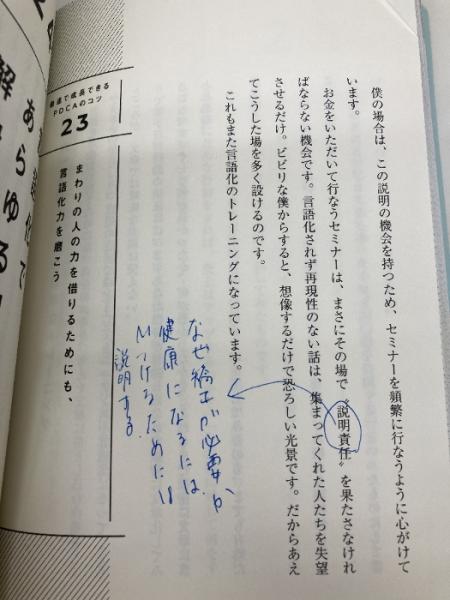 僕の場合は、この説明の機会を持つため、セミナーを頻繁に行なうように心がけて
います。
お金をいただいて行なうセミナーは、まさにその場で〝説明責任〟を果たさなけれ
ばならない機会です。言語化されず再現性のない話は、集まってくれた人たちを失望
させるだけ。ビビリな僕からすると、想像するだけで恐ろしい光景です。だからあえ
てこうした場を多く設けるのです。
これもまた言語化のトレーニングになっています。
なぜ矯正が必要か
健康になるには
つけるためには
説明する
最速で成長できる
PDCAのコツ
23
まわりの人の力を借りるためにも、
言語化力を磨こう
あらゆる